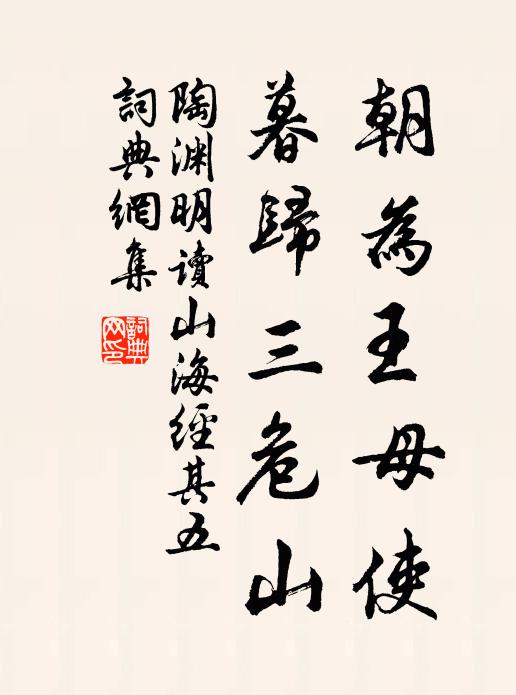 朝為王母使
暮歸三危山
陶淵明讀山海經其五
詞典網集
詞典網印